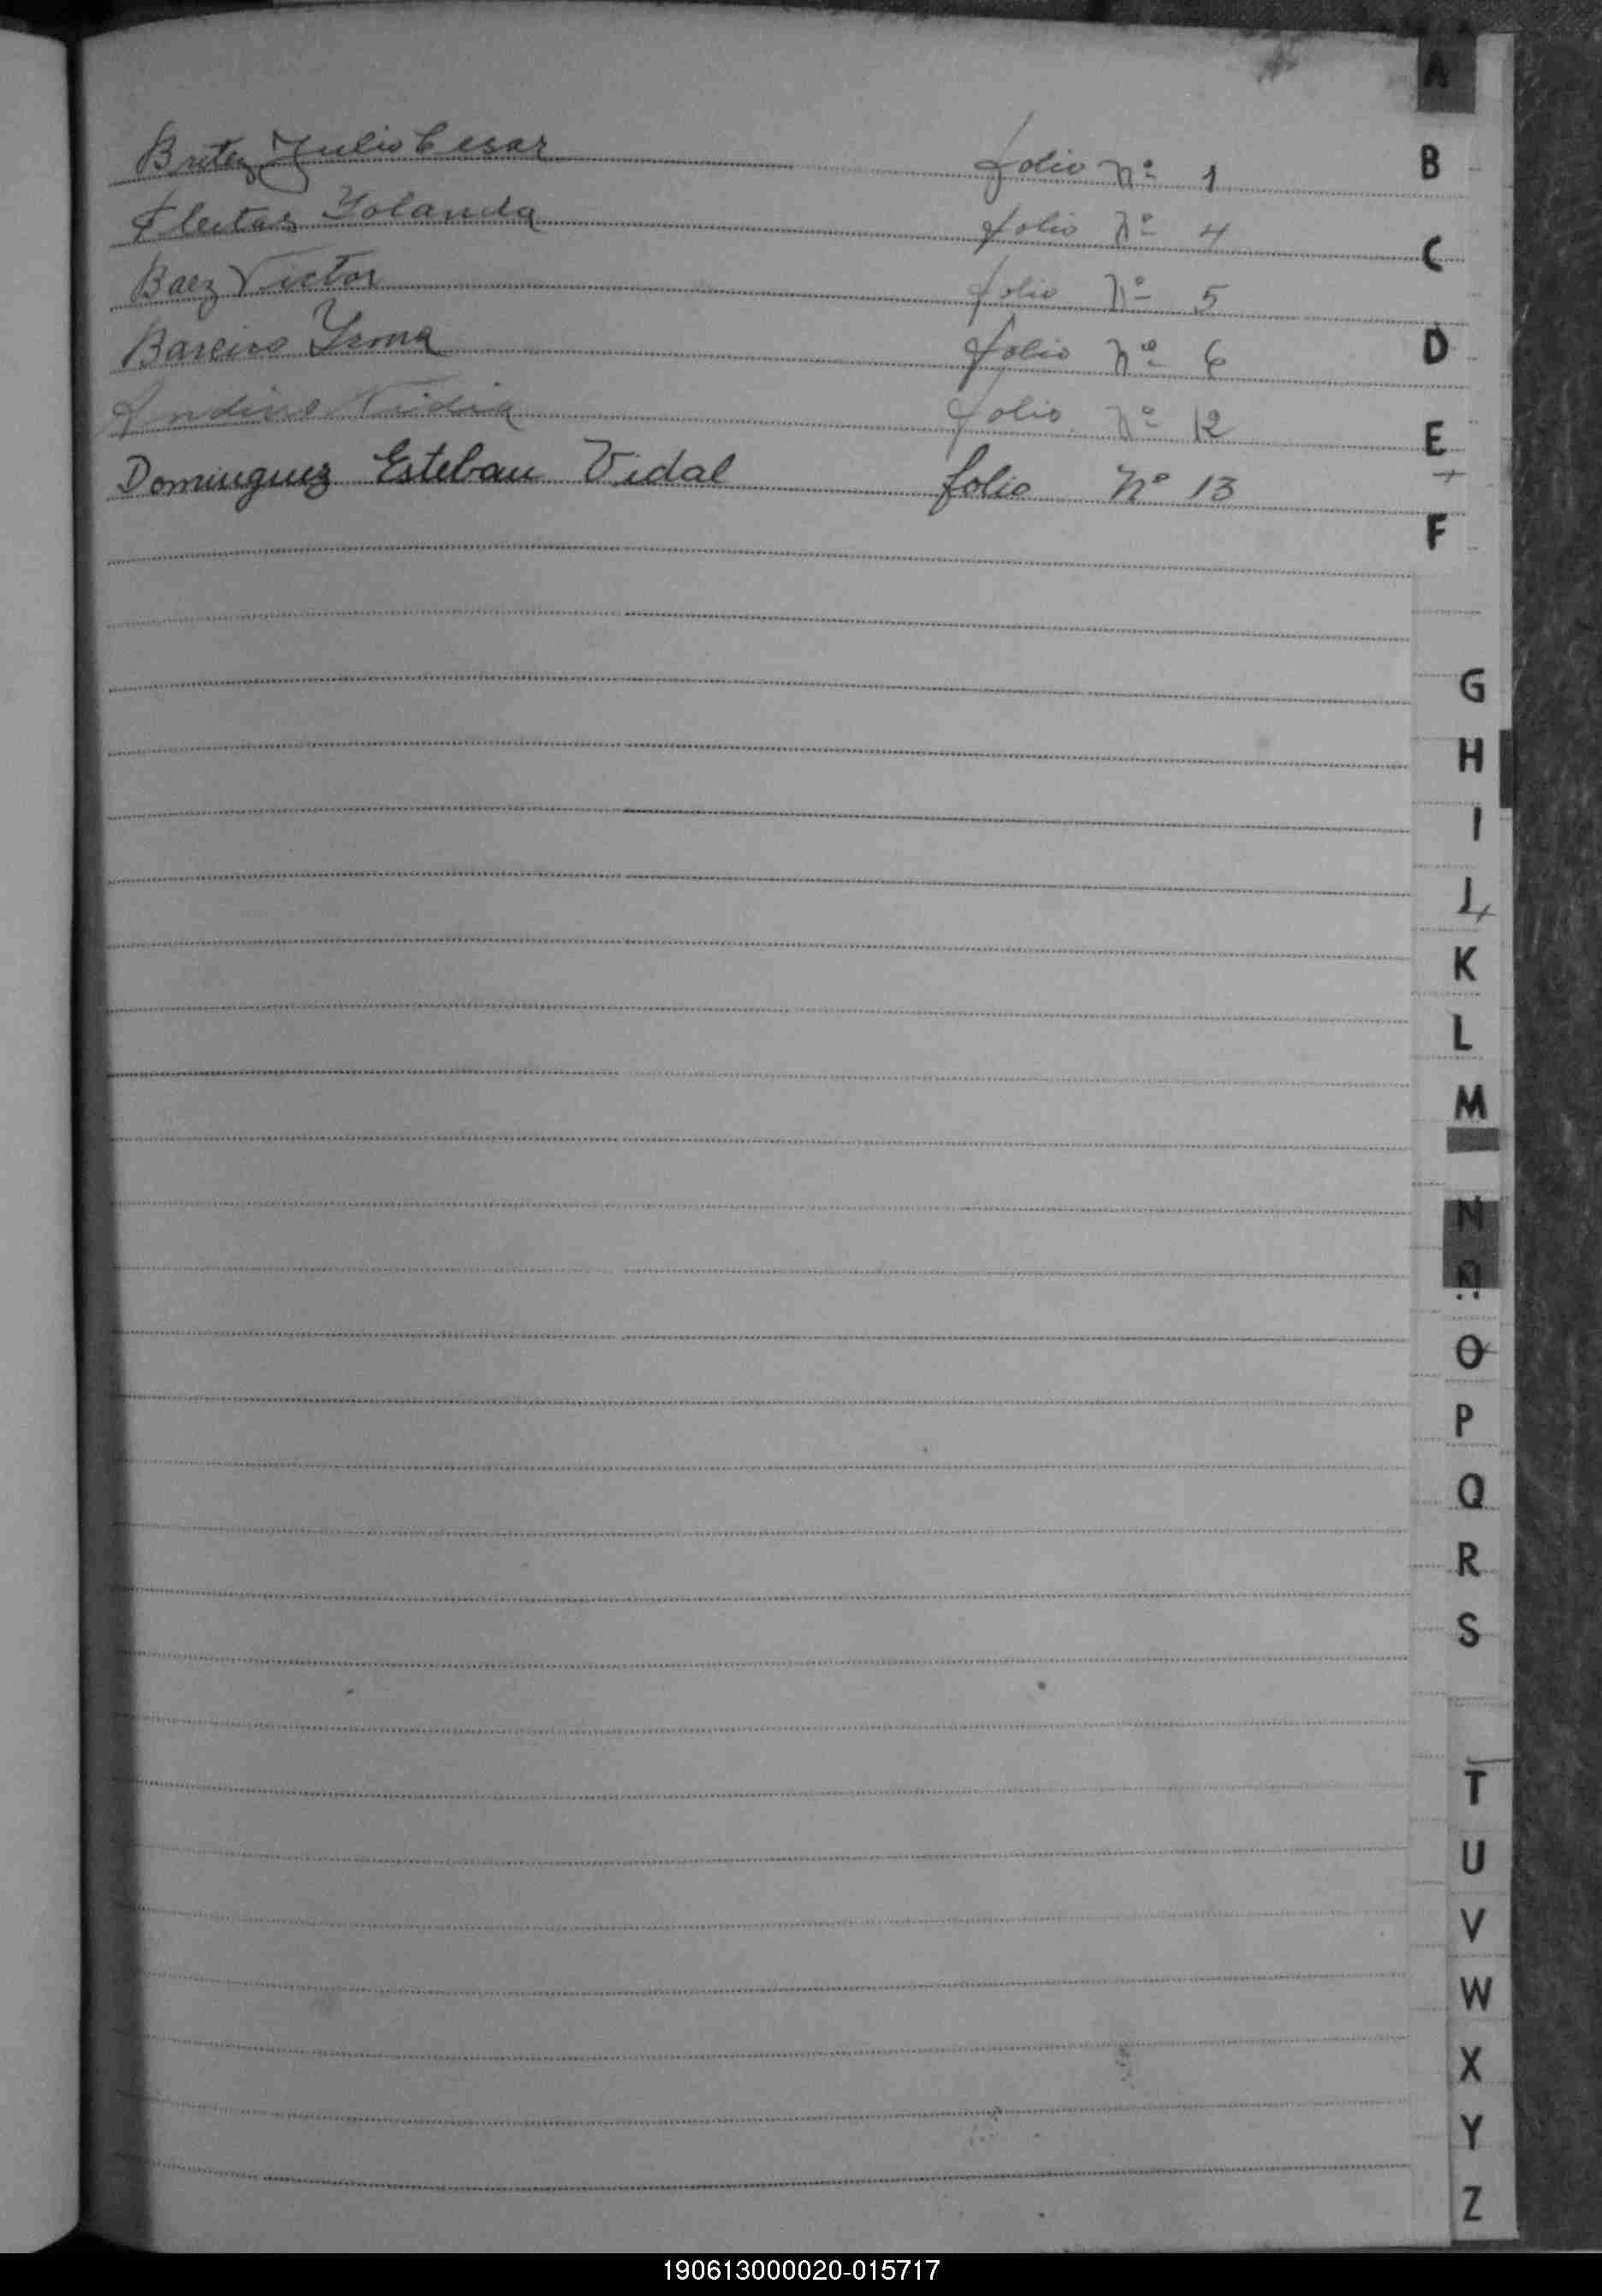 Britez Julio Cesar folio Nº 1
Fleitas Yolanda folio Nº 4
Baez Victor folio Nº 5
Bareiro Yrma folio Nº 6
Andino Nidia folio Nº 12
Dominguez Esteban Vidal folio Nº 13
A
B
C
D
E
F
G
H
I
J
K
L
M
N
Ñ
O
P
Q
R
S
T
U
V
W
X
Y
Z
190613000020-015717